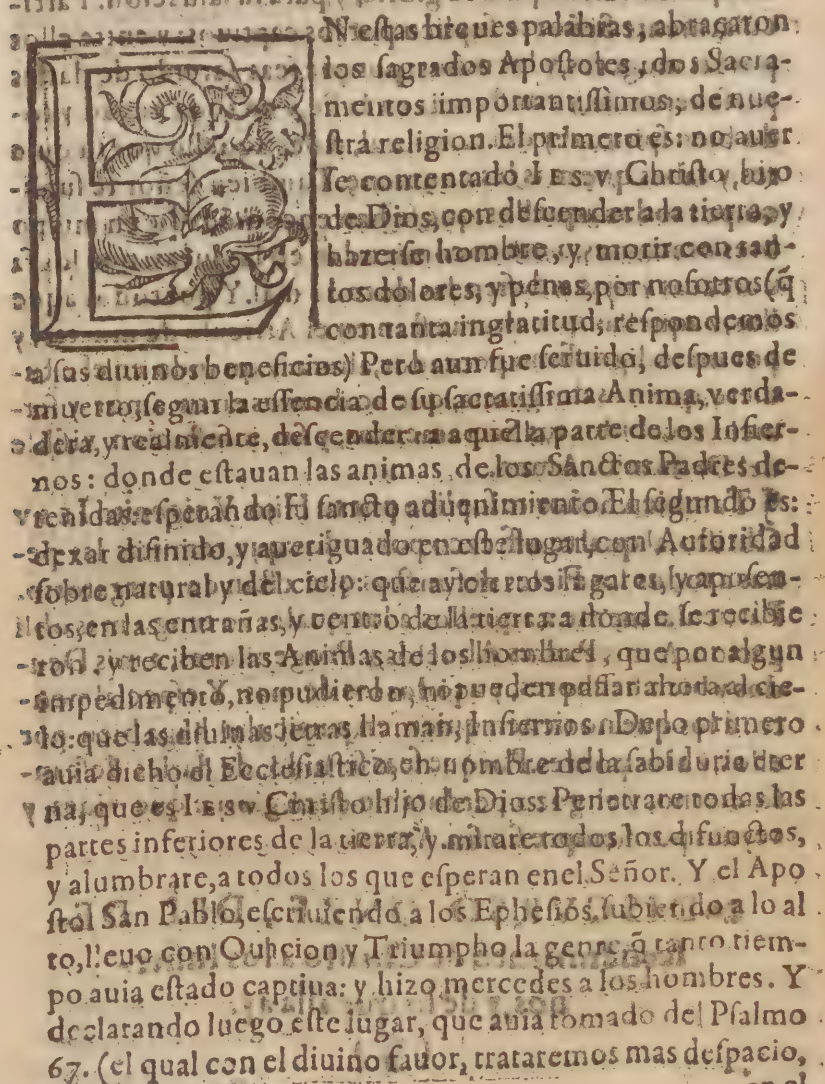 EN estas breues palabras, abraçaron
los sagrados Apostoles, dos Sacra-
mentos importantissimos, de nue-
stra religion. El primero es: no auer
se contentado IESV Christo, hijo
de Dios, con descender a la tierra, y
hazerse hombre, y morir con tan-
tos dolores, y penas, por nosotros (q̃
con tanta ingratitud, respondemos
a sus diuinos beneficios) Pero aun fue seruido, despues de
muerto, segun la essencia de su sacratissima Anima, verda-
dera, y realmente, descender a aquella parte de los Infier-
nos: donde estauan las animas de los Sanctos Padres de-
tenidas esperando su sancto aduenimiento. El segundo es:
dexar difinido, y aueriguado en este lugar, con Autoridad
sobre natural y del cielo: que ay ciertos lugares, y aposen-
tos, en las entrañas, y centro de la tierra: a donde se recibie
ron, y reciben las Animas de los hombres, que por algun
impedimento, no pudieron, no pueden passar al cie-
lo: que las diuinas letras llaman, Infiernos. De lo primero
auia dicho el Ecclesiastico, en nombre de la sabiduria eter
na, que es IESV Christo hijo de Dios: Penetrare todas las
partes inferiores de la tierra, y mirare todos los difunctos,
y alumbrare, a todos los que esperan enel Señor. Y el Apo
stol San Pablo, escriuiendo a los Ephesios, subiendo a lo al
to, lleuo con Ouacion y Triumpho la gente, q̃ tanto tiem-
po auia estado captiua: y hizo mercedes a los hombres. Y
declarando luego este lugar, que auia tomado del Psalmo
67. (el qual con el diuino fauor, trataremos mas despacio,